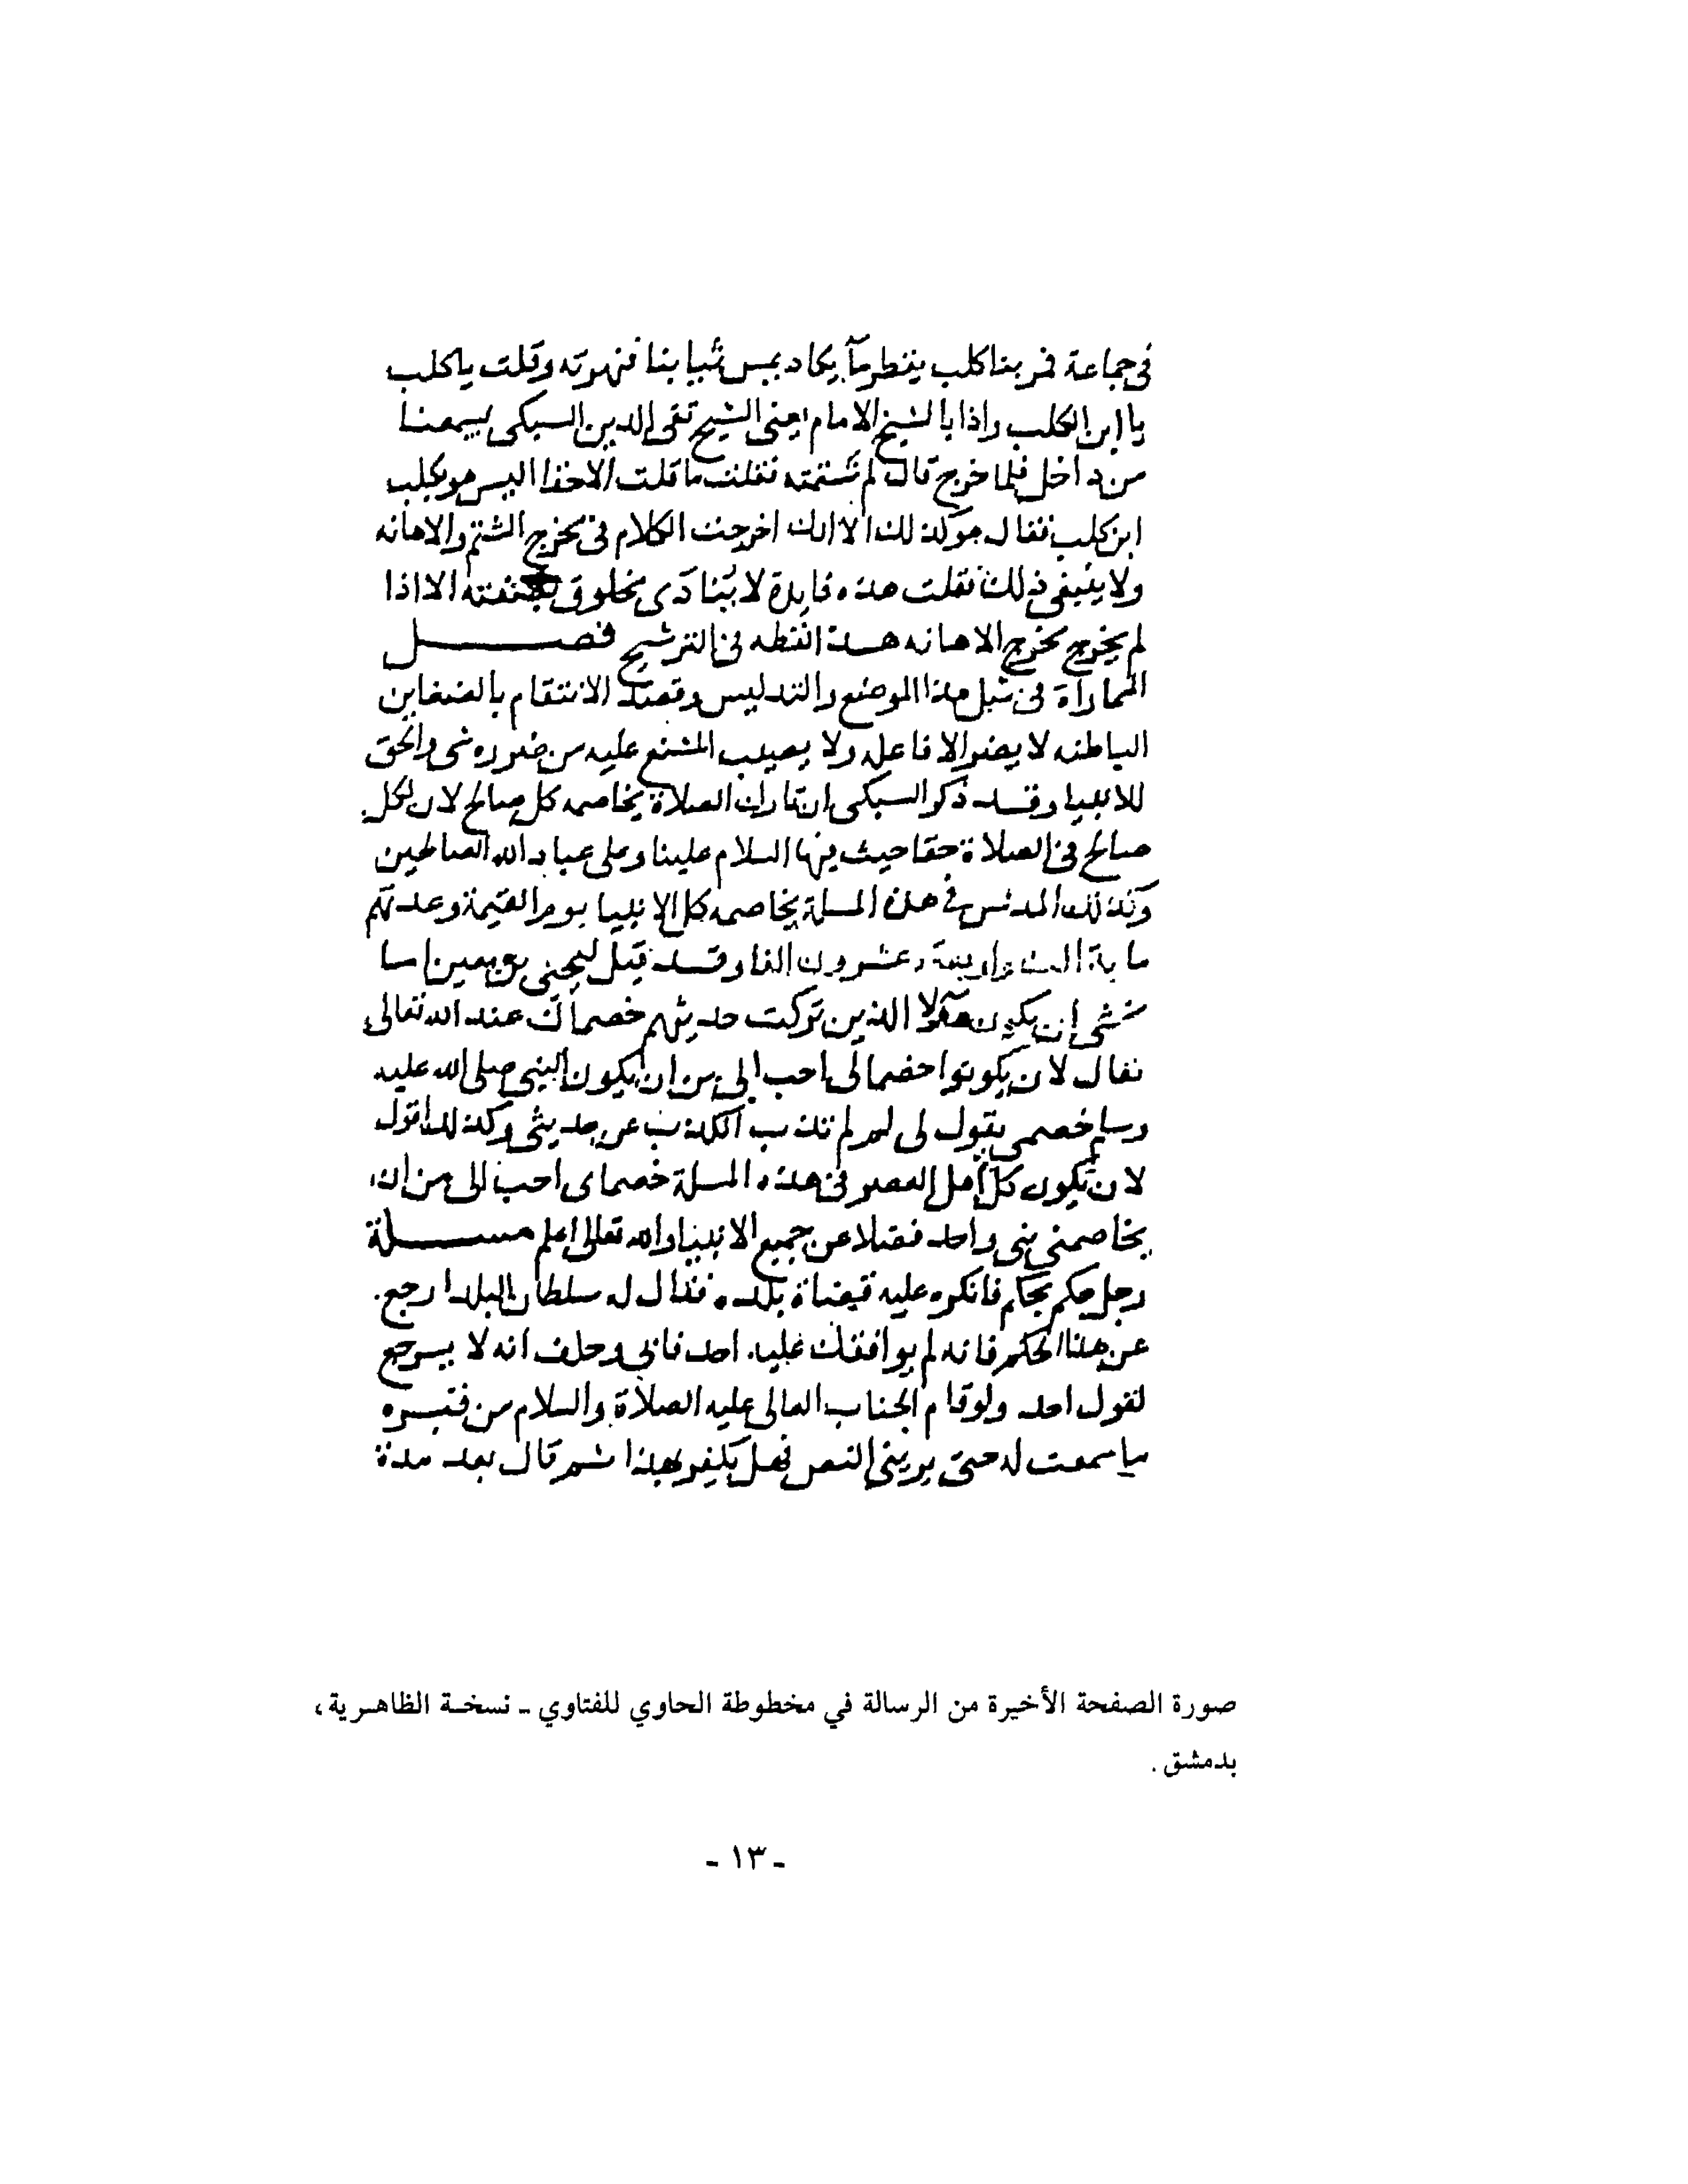 في جماعة فمر بنا كلب يقطر ماً يكاد يمس ثيابنا فنهرته وقلت يا كلب
يا ابن الكلب واذا بالشيخ الامام يعني الشيخ تقي الدين السبكي يسمعنا
من داخل فلما خرج قال لم شتمته فقلت ما قلت الا حقا اليس هو بكلب
ابن كلب فقال هو كذلك الا انك اخرجت الكلام في مخرج الشتم والاهانه
ولا ينبغي ذلك فقلت هذه فايدة لا ينادى مخلوق بصفته الا اذا
لم يخرج مخرج الاهانه هذا لفظه في الترشيح فصل
المماراة في مثل هذا الموضع والتدليس وقصد الانتقام بالضغاين
الباطنه لا يضر الا فاعله ولا يصيب المشنع عليه من ضرره شي والحق
للانبيا وقد ذكر السبكي ان تارك الصلاة يخاصمه كل صالح لان لكل
صالح في الصلاة حقا حيث فيها السلام علينا وعلى عباد الله الصالحين
وكذلك المدلس في هذه المسلة يخاصمه كل الانبيا يوم القيمة وعدتهم
ماية الف واربعة وعشرون الفا وقد قيل ليحيى بن معين اما
تخشى ان يكون هؤلا الذين تركت حديثهم خصماك عند الله تعالى
فقال لان يكونوا خصمالى احب الي من ان يكون النبي صلى الله عليه
وسلم خصمى يقول لي لم لم تذب الكذب عن حديثي وكذلك اقول
لان يكون كل اهل العصر في هذه المسلة خصماى احب الى من ان
يخاصمني نبي واحد فضلا عن جميع الانبيا والله تعالى اعلم مسلة
رجل حكم بحكم فانكره عليه قضاة بلده فقال له سلطان البلد ارجع
عن هذا الحكم فانه لم يوافقك عليه احد فابى وحلف انه لا يرجع
لقول احد ولو قام الجناب العالى عليه الصلاة والسلام من قبره
ما سمعت له حتى يريني النص فهل يكفر بهذا ثم قال بعد مدة
صورة الصفحة الأخيرة من الرسالة في مخطوطة الحاوي للفتاوي - نسخة الظاهرية،
بدمشق .
- ١٣ -